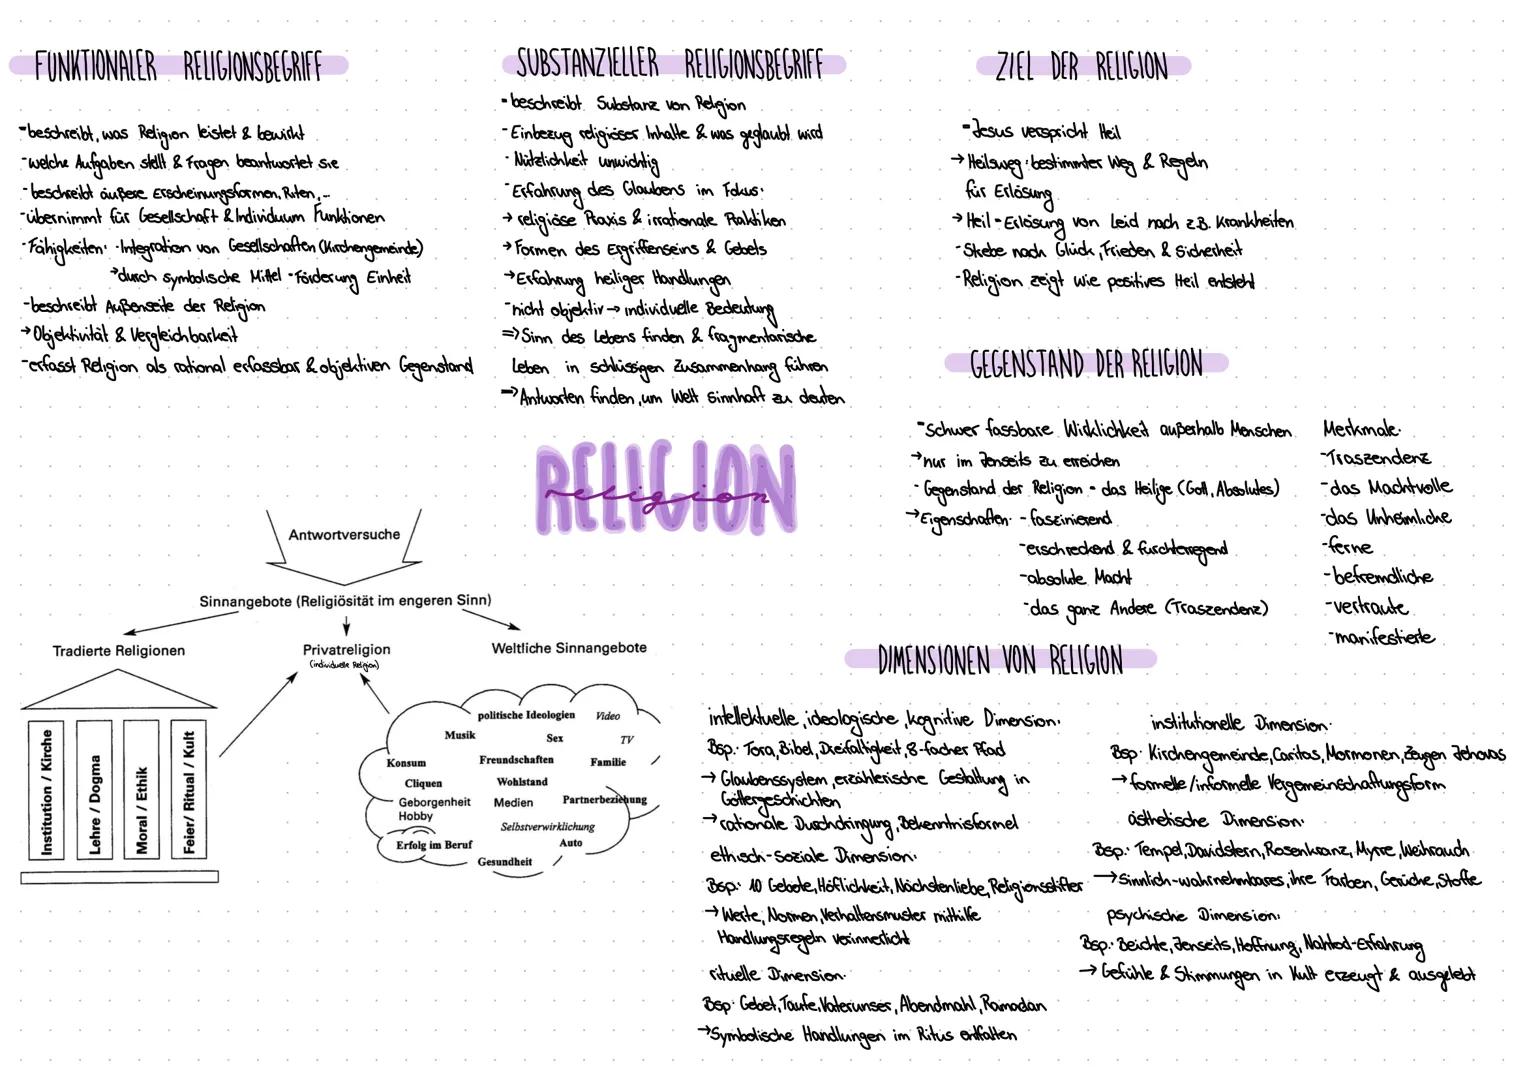 FUNKTIONALER RELIGIONSBEGRIFF
-beschreibt, was Religion leistet & bewirkt
-welche Aufgaben stellt & Fragen beantwortet sie
-beschreibt äußere Erscheinungsformen, Riten,...
-übernimmt für Gesellschaft & Individuum Funktionen
-Fähigkeiten: -Integration von Gesellschaften (Kirchengemeinde)
→durch symbolische Mittel -Förderung Einheit
-beschreibt Außenseite der Religion
→Objektivität & Vergleichbarkeit
-erfasst Religion als rational erfassbar & objektiven Gegenstand
SUBSTANZIELLER RELIGIONSBEGRIFF
-beschreibt Substanz von Religion
-Einbezug religiöser Inhalte & was geglaubt wird
-Nützlichkeit unwichtig
-Erfahrung des Glaubens im Fokus:
→religiöse Praxis & irrationale Praktiken
→Formen des Ergriffenseins & Gebets
→Erfahrung heiliger Handlungen
-nicht objektiv→individuelle Bedeutung
=>Sinn des Lebens finden & fragmentarische
Leben in schlüssigen Zusammenhang führen
=>Antworten finden, um Welt sinnhaft zu deuten
ZIEL DER RELIGION
-Jesus verspricht Heil
→Heilsweg: bestimmter Weg & Regeln
für Erlösung
→Heil = Erlösung von Leid nach z.B. Krankheiten
-Strebe nach Glück, Frieden & Sicherheit
-Religion zeigt wie positives Heil entsteht
GEGENSTAND DER RELIGION
-Schwer fassbare Wirklichkeit außerhalb Menschen
→nur im Jenseits zu erreichen
-Gegenstand der Religion = das Heilige (Gott, Absolutes)
→Eigenschaften: -faszinierend
-erschreckend & furchterregend
-absolute Macht
-das ganz Andere (Traszendenz)
Merkmale:
-Traszendenz
-das Machtvolle
-das Unheimliche
-ferne
-befremdliche
-vertraute
-manifestierte
RELIGION
religion
Antwortversuche
Sinnangebote (Religiösität im engeren Sinn)
Tradierte Religionen
Privatreligion
(individuelle Religion)
Weltliche Sinnangebote
Institution / Kirche
Lehre / Dogma
Moral / Ethik
Feier/ Ritual / Kult
politische Ideologien Video
Musik Sex TV
Konsum Freundschaften Familie
Cliquen Wohlstand
Geborgenheit Medien Partnerbeziehung
Hobby
Selbstverwirklichung
Erfolg im Beruf Auto
Gesundheit
DIMENSIONEN VON RELIGION
intellektuelle, ideologische, kognitive Dimension:
Bsp.: Tora, Bibel, Dreifaltigkeit, 8-facher Pfad
→Glaubenssystem, erzählerische Gestaltung in
Göttergeschichten
→rationale Durchdringung, Bekenntnisformel
ethisch-soziale Dimension:
Bsp.: 10 Gebote, Höflichkeit, Nächstenliebe, Religionsstifter
→Werte, Normen, Verhaltensmuster mithilfe
Handlungsregeln verinnerlicht
rituelle Dimension:
Bsp: Gebet, Taufe, Vaterunser, Abendmahl, Ramadan
→Symbolische Handlungen im Ritus entfalten
institutionelle Dimension:
Bsp: Kirchengemeinde, Caritas, Mormonen, Zeugen Jehovas
→formelle/informelle Vergemeinschaftungsform
ästhetische Dimension:
Bsp.: Tempel, Davidstern, Rosenkranz, Myrre, Weihrauch
→Sinnlich-wahrnehmbares, ihre Farben, Gerüche, Stoffe
psychische Dimension:
Bsp.: Beichte, Jenseits, Hoffnung, Nahtod-Erfahrung
→Gefühle & Stimmungen in Kult erzeugt & ausgelebt